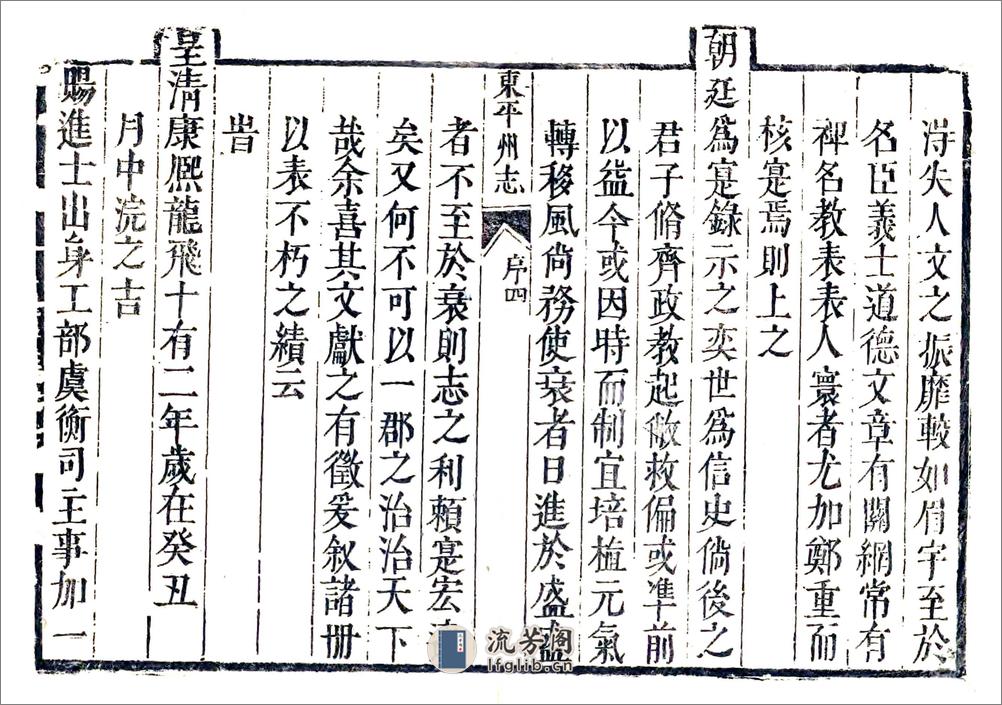 得失人文之振靡較如眉宇至於
名臣義士道德文章有關綱常有
裨名教表表人寰者尤加鄭重而
核寔焉則上之
朝廷為寔錄示之奕世為信史倘後之
君子脩齊政教起敝救偏或凖前
以益今或因時而制宜培植元氣
轉移風尚務使衰者日進於盛盛
東平州志
序四
者不至於衰則志之利賴寔宏
矣又何不可以一郡之治治天下
哉余喜其文獻之有徵爰叙諸册
以表不朽之績云
旹
皇清康熙龍飛十有二年歲在癸丑
月中浣之吉
賜進士出身工部虞衡司主事加一
流芳閣
lfglib.cn